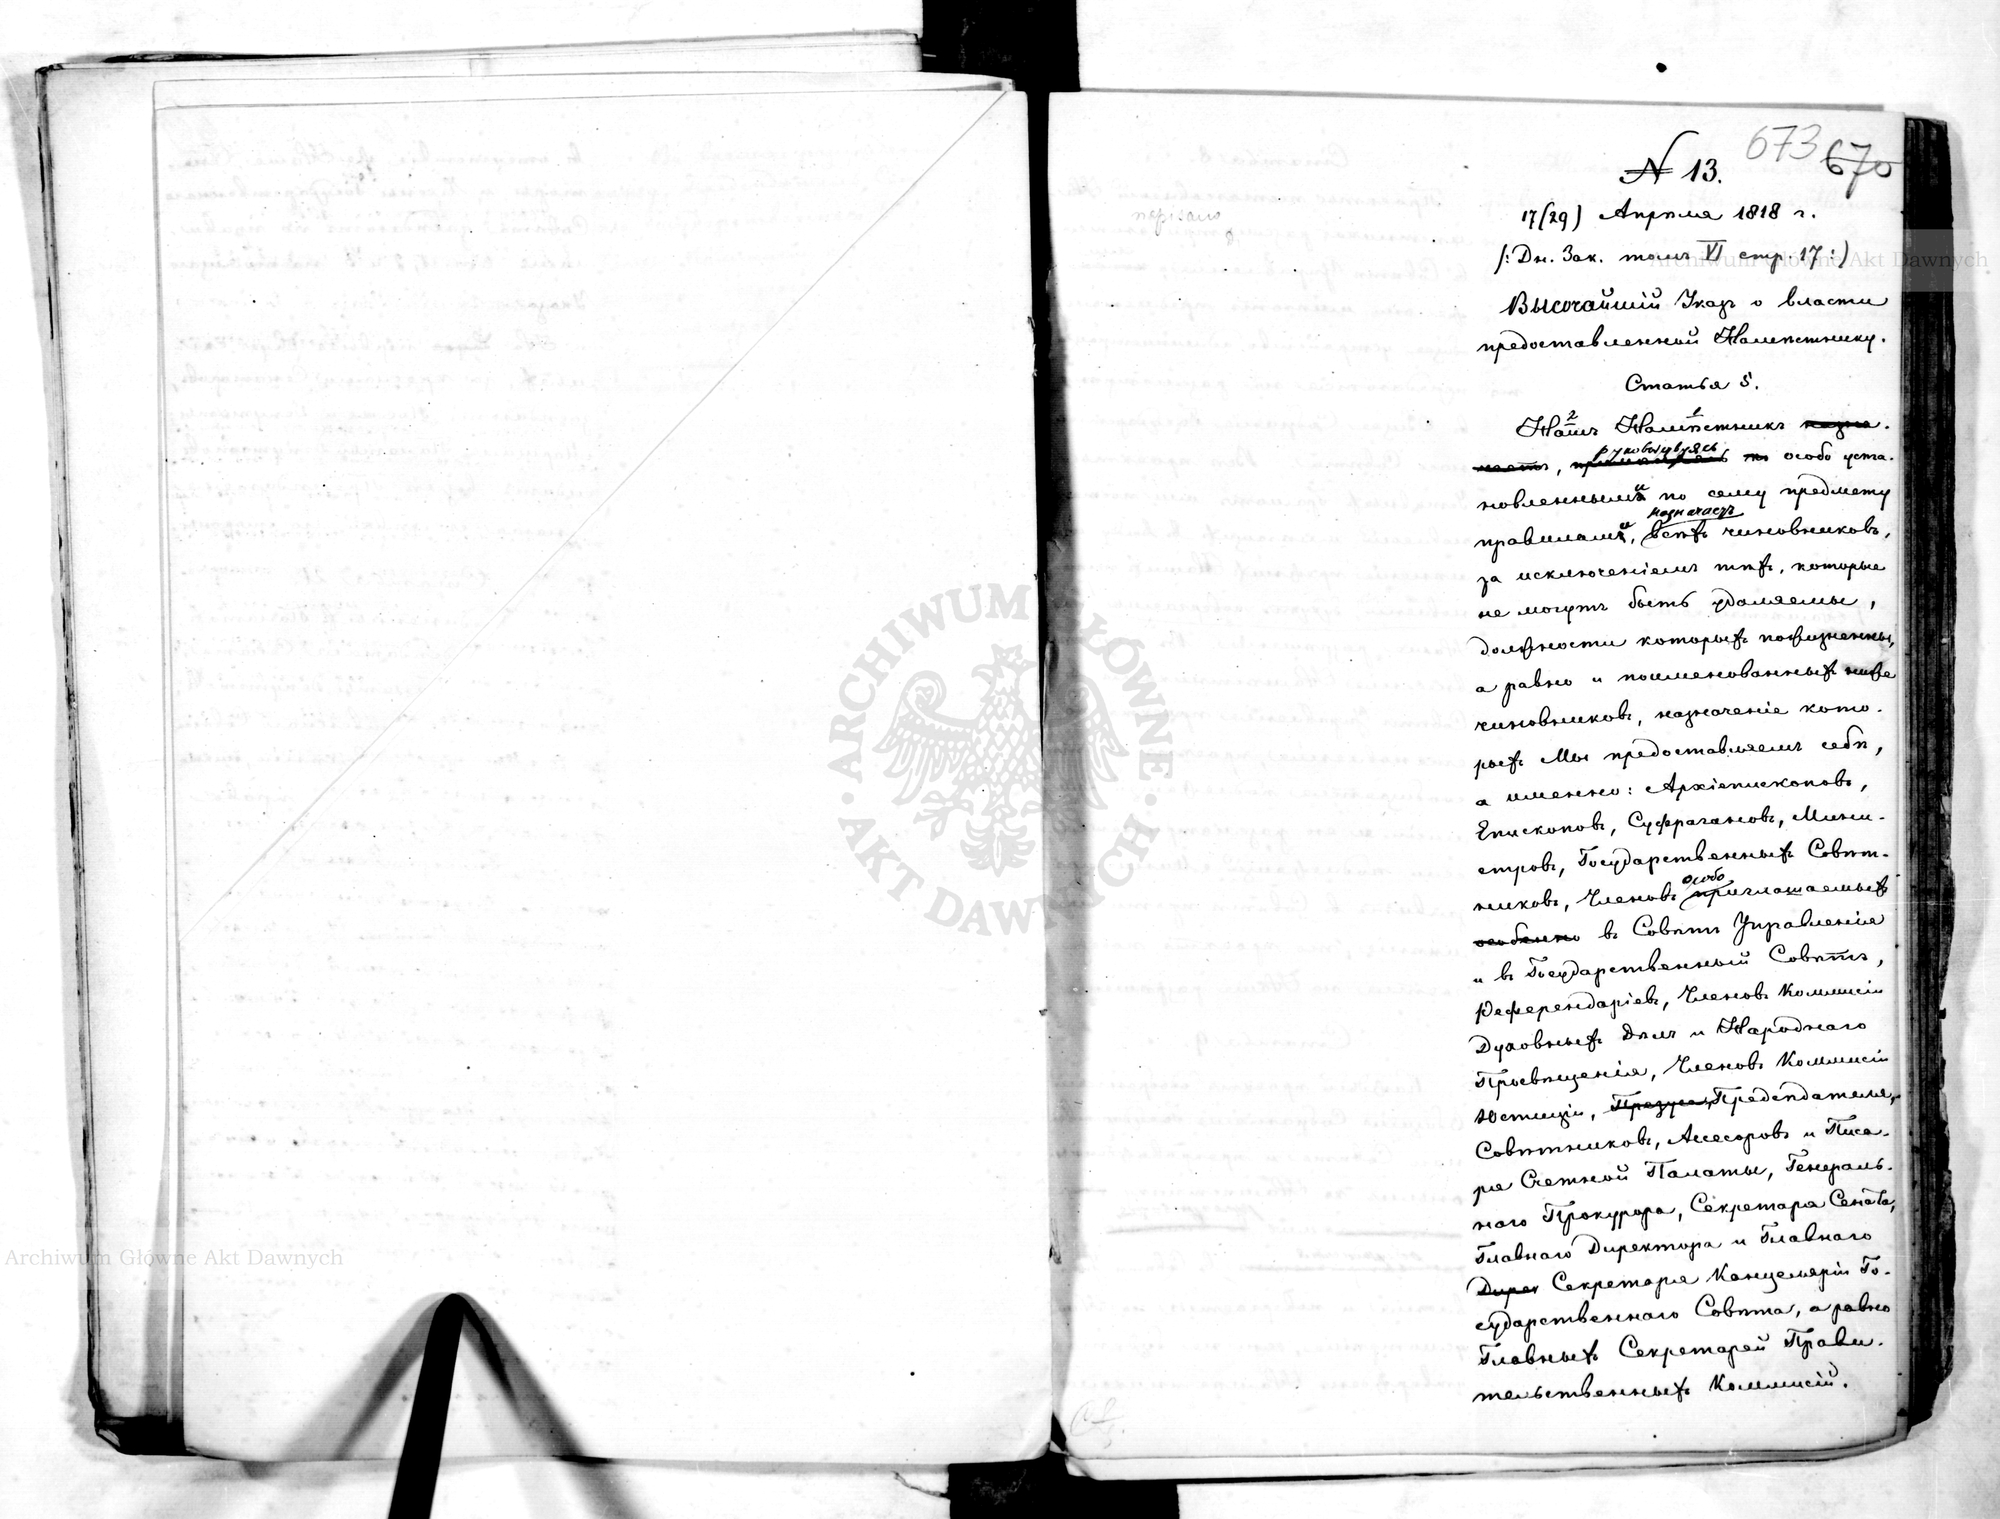 673 670
№ 13.
17(29) Апрѣля 1818 г.
/: Дн. Зак. томъ VI стр. 17 :/
Высочайшій Указъ о власти
предоставленной Намѣстнику.
Статья 5.
2 1
Нашъ Намѣстникъ назна-
руководствуясь
чаетъ, по особо уста-
новленнымъ и по сему предмету
назначаетъ
правиламъ и, всѣхъ чиновниковъ,
за исключеніемъ тѣхъ, которые
не могутъ быть удаляемы,
должности которыхъ пожизненны,
а равно и поименованныхъ ниже
чиновниковъ, назначеніе кото-
рыхъ Мы предоставляемъ себѣ,
а именно: Архіепископовъ,
Епископовъ, Суфрагановъ, Мини-
стровъ, Государственныхъ Совѣт-
особо
никовъ, Членовъ приглашаемыхъ
особенно въ Совѣтъ Управленія
и въ Государственный Совѣтъ,
Референдаріевъ, Членовъ Коммисіи
Духовныхъ Дѣлъ и Народнаго
Просвѣщенія, Членовъ Коммисіи
Юстиціи, Президента, Предсѣдателя,
Совѣтниковъ, Ассесоровъ и Писа-
ря Счетной Палаты, Генераль-
наго Прокурора, Секретаря Сената,
Главнаго Директора и Главнаго
Дирек Секретаря Канцеляріи Го-
сударственнаго Совѣта, а равно
Главныхъ Секретарей Прави-
тельственныхъ Коммисій.
ARCHIWUM GŁÓWNE AKT DAWNYCH
Archiwum Główne Akt Dawnych
Archiwum Główne Akt Dawnych